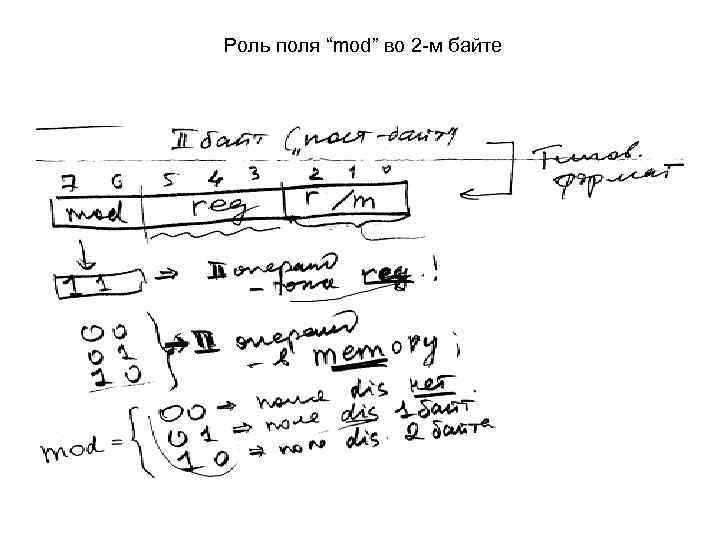 Роль поля “mod” во 2-м байте
II байт („пост-байт“)
Типов. формат
7 6 5 4 3 2 1 0
mod reg r/m
11 ⇒ II операнд
– тоже reg.!
00
01
10
⇒ II операнд
– в memory;
mod =
00 ⇒ поле dis нет.
01 ⇒ поле dis 1 байт
10 ⇒ поле dis. 2 байта